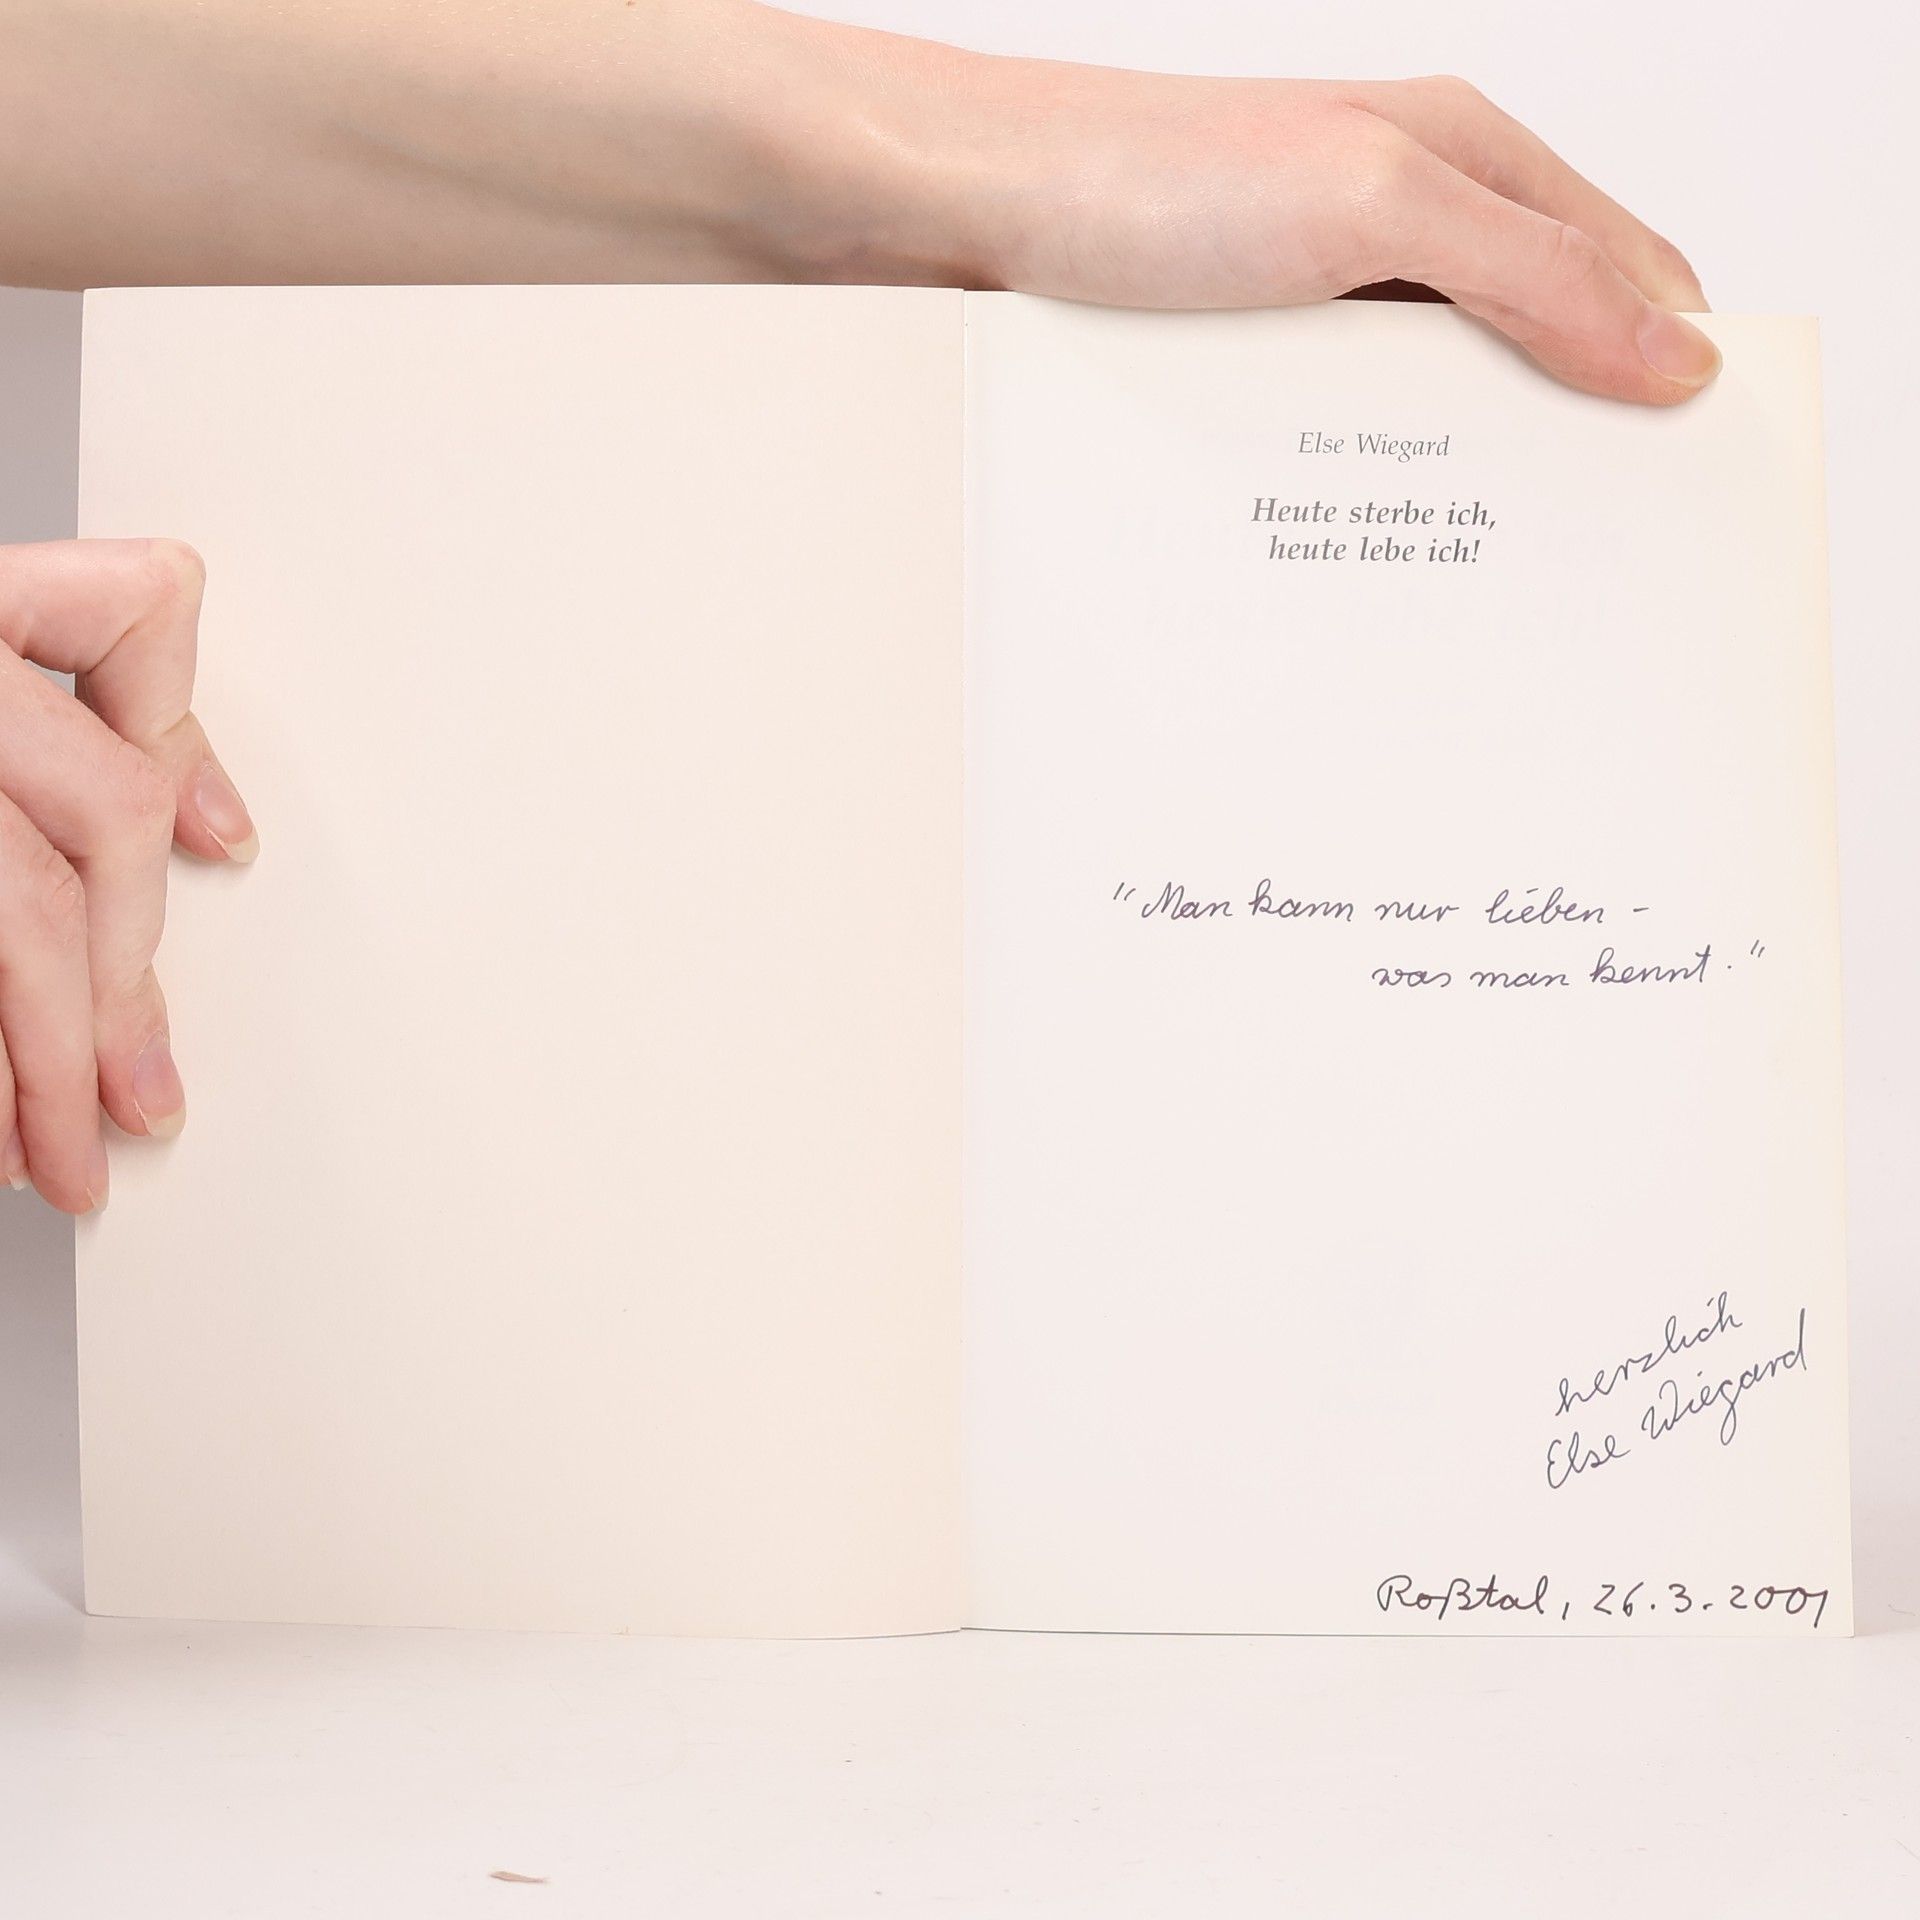 Else Wiegard
Heute sterbe ich,
heute lebe ich!
"Man kann nur lieben -
was man kennt."
herzlich
Else Wiegard
Roßtal, 26.3.2001